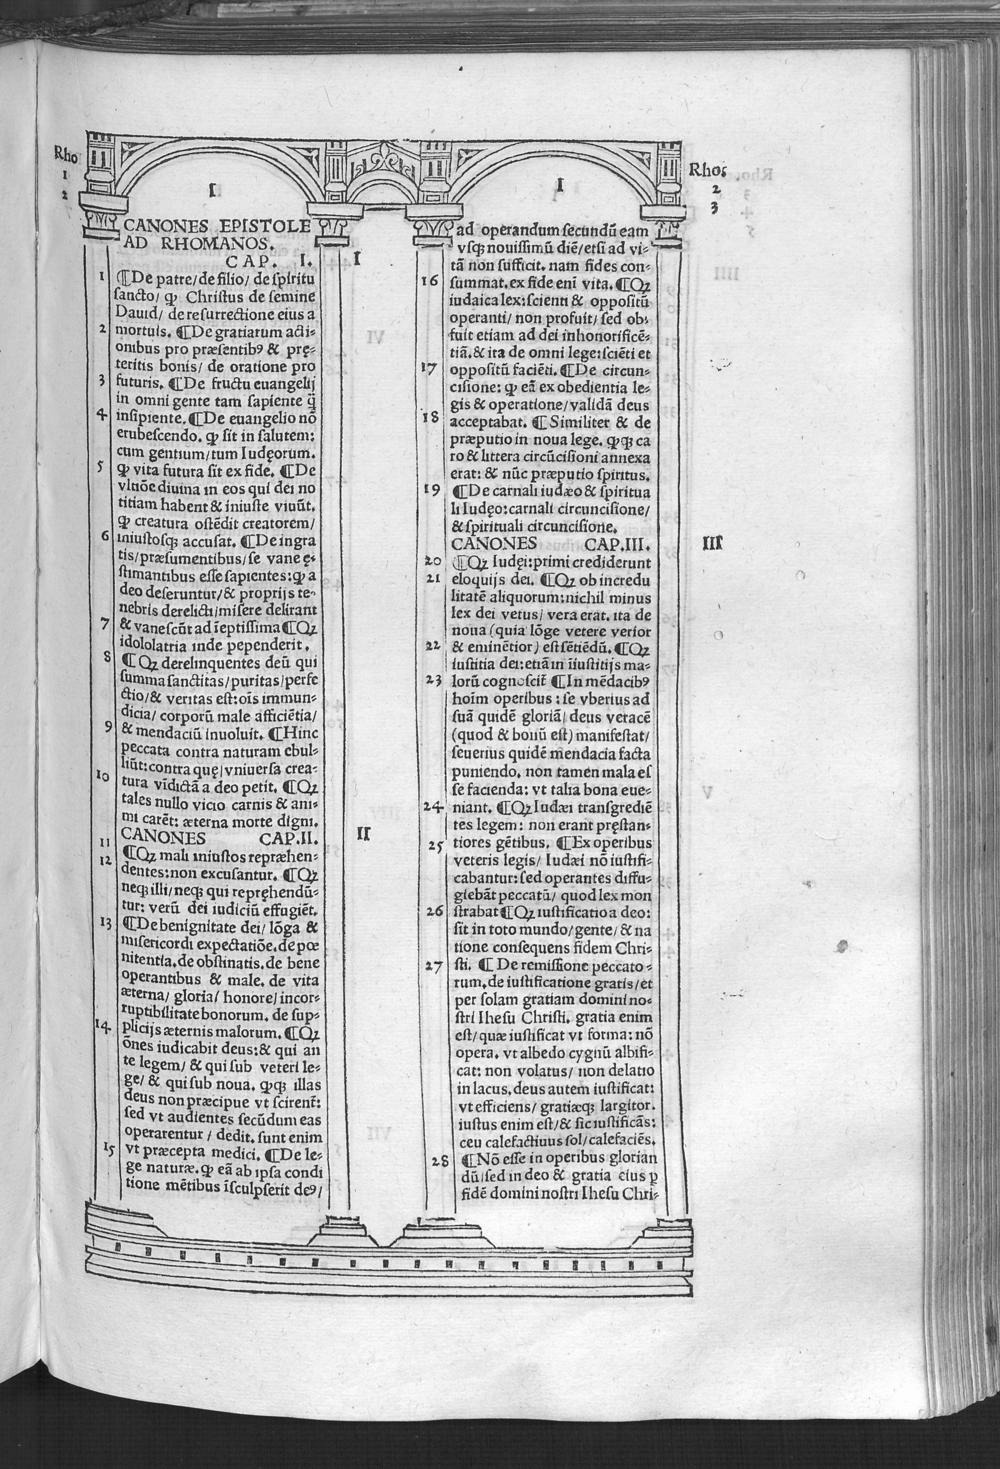 Rho
1
2
I
I
Rhoꝭ
2
3
CANONES EPISTOLE
AD RHOMANOS.
CAP. I.
I
1 ¶De patre/ de filio/ de spiritu
sancto/ ꝙ Christus de semine
Dauid/ de resurrectione eius a
2 mortuis. ¶De gratiarum acti-
onibus pro præsentibꝰ & prę-
teritis bonis/ de oratione pro
3 futuris. ¶De fructu euangelij
in omni gente tam sapiente q̃
4 insipiente. ¶De euangelio nõ
erubescendo. ꝙ sit in salutem:
cum gentium/ tum Iudęorum.
5 ꝙ vita futura sit ex fide. ¶De
vltiõe diuina in eos qui dei no
titiam habent & iniuste viuũt.
ꝙ creatura ostẽdit creatorem/
6 iniustosqꝫ accusat. ¶De ingra
tis/ præsumentibus/ se vane ę-
stimantibus esse sapientes: ꝙ a
deo deseruntur/ & proprijs te-
nebris derelicti/ misere delirant
7 & vanescũt ad ĩeptissima ¶Qꝫ
idololatria inde pependerit.
8 ¶Qꝫ derelinquentes deũ qui
summa sanctitas/ puritas/ perfe
ctio/ & veritas est: oĩs immun-
dicia/ corporũ male afficiẽtia/
9 & mendaciũ inuoluit. ¶Hinc
peccata contra naturam ebul-
liũt: contra quę/ vniuersa crea-
10 tura vĩdictã a deo petit. ¶Qꝫ
tales nullo vicio carnis & ani-
mi carẽt: æterna morte digni.
CANONES CAP.II.
II
11 ¶Qꝫ mali iniustos repræhen-
12 dentes: non excusantur. ¶Qꝫ
neqꝫ illi/ neqꝫ qui repręhendũ-
tur: verũ dei iudiciũ effugiẽt.
13 ¶De benignitate dei/ lõga &
misericordi expectatiõe. de pœ
nitentia. de obstinatis. de bene
operantibus & male. de vita
æterna/ gloria/ honore/ incor-
ruptibilitate bonorum. de sup-
14 plicijs æternis malorum. ¶Qꝫ
õnes iudicabit deus: & qui an
te legem/ & qui sub veteri le-
ge/ & qui sub noua. ꝙqꝫ illas
deus non præcipue vt scirent̃:
sed vt audientes secũdum eas
operarentur/ dedit. sunt enim
15 vt præcepta medici. ¶De le-
ge naturæ. ꝙ eã ab ipsa condi
tione mẽtibus ĩsculpserit deꝰ/
ad operandum secundũ eam
vsqꝫ nouissimũ diẽ/ etsi ad vi-
tã non sufficit. nam fides con-
16 summat. ex fide enĩ vita. ¶Qꝫ
iudaica lex: scienti & oppositũ
operanti/ non profuit/ sed ob-
fuit etiam ad dei inhonorificẽ-
tiã. & ita de omni lege: sciẽti et
17 oppositũ faciẽti. ¶De circun-
cisione: ꝙ eã ex obedientia le-
gis & operatione/ validã deus
18 acceptabat. ¶Similiter & de
præputio in noua lege. ꝙqꝫ ca
ro & littera circũcisioni annexa
erat: & nũc præputio spiritus.
19 ¶De carnali iudæo & spiritua
li Iudęo: carnali circuncisione/
& spirituali circuncisione.
CANONES CAP.III.
III
20 ¶Qꝫ Iudęi: primi crediderunt
21 eloquijs dei. ¶Qꝫ ob incredu
litatẽ aliquorum: nichil minus
lex dei vetus/ vera erat. ita de
noua (quia lõge vetere verior
22 & eminẽtior) est sẽtiẽdũ. ¶Qꝫ
iustitia dei: etiã in ĩiustitijs ma-
23 lorũ cognoscit̃ ¶In mẽdacibꝰ
hoĩm operibus: se vberius ad
suã quidẽ gloriã/ deus veracẽ
(quod & bonũ est) manifestat/
seuerius quidẽ mendacia facta
puniendo. non tamen mala es
se facienda: vt talia bona eue-
24 niant. ¶Qꝫ Iudæi transgrediẽ
tes legem: non erant pręstan-
25 tiores gẽtibus. ¶Ex operibus
veteris legis/ Iudæi nõ iustifi-
cabantur: sed operantes diffu-
giebãt peccatũ/ quod lex mon
26 strabat ¶Qꝫ iustificatio a deo:
sit in toto mundo/ gente/ & na
tione consequens fidem Chri-
27 sti. ¶De remissione peccato-
rum. de iustificatione gratis/ et
per solam gratiam domini no-
stri Ihesu Christi. gratia enim
est/ quæ iustificat vt forma: nõ
opera. vt albedo cygnũ albifi-
cat: non volatus/ non delatio
in lacus. deus autem iustificat:
vt efficiens/ gratiæqꝫ largitor.
iustus enim est/ & sic iustificãs:
ceu calefactiuus sol/ calefaciẽs.
28 ¶Nõ esse in operibus glorian
dũ/ sed in deo & gratia eius ꝑ
fidẽ domini nostri Ihesu Chri-